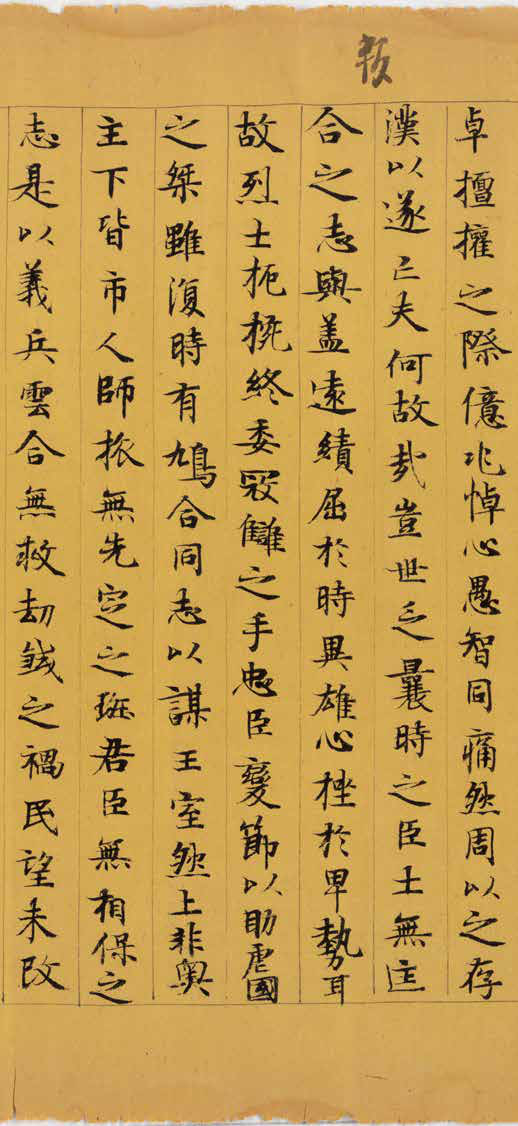 卓擅權之際億兆悼心愚智同痛然周以之存
漢以遂亡夫何故哉豈世乏曩時之臣士無匡
合之志與盖遠績屈於時異雄心挫於卑勢耳
故烈士扼捥終委寇讎之手忠臣變節以助虐國
之桀雖復時有鳩合同志以謀王室然上非奥
主下皆市人師旅無先定之班君臣無相保之
志是以義兵雲合無救劫之禍民望未改